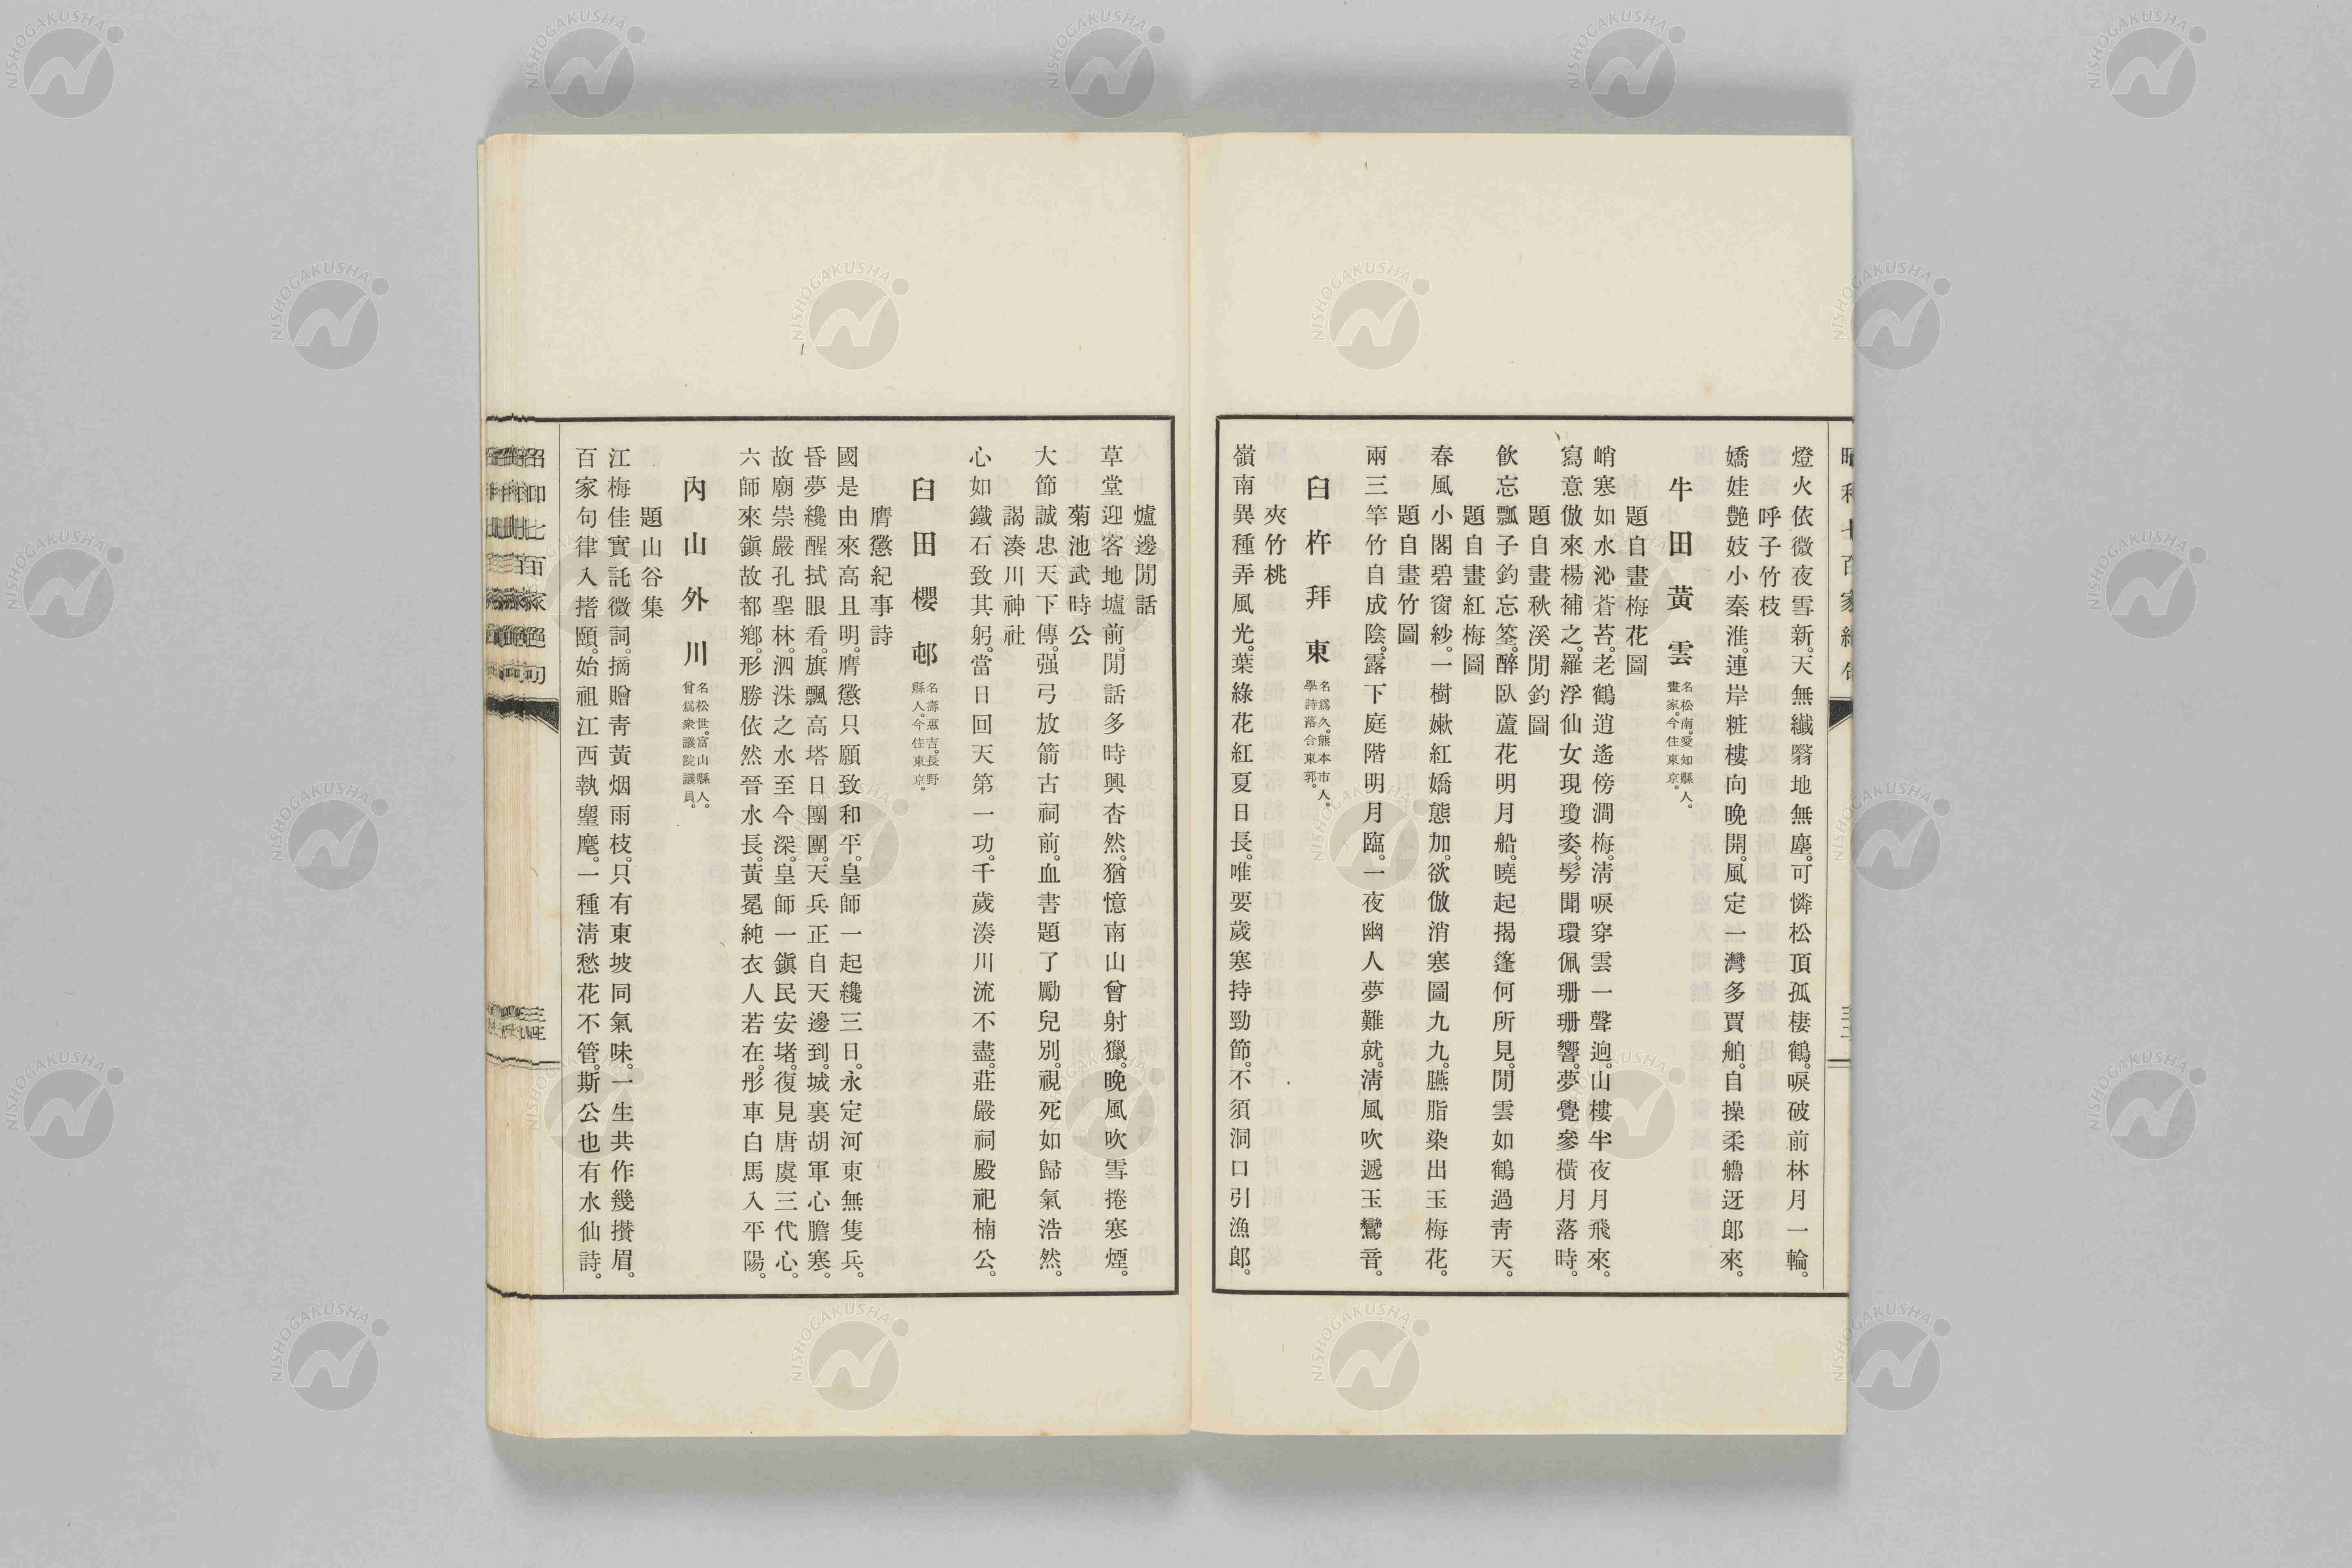 燈火依微夜雪新。天無纖翳地無塵。可憐松頂孤棲鶴。唳破前林月一輪。
呼子竹枝
嬌娃艶妓小秦淮。連岸粧樓向晚開。風定一灣多賈舶。自操柔艪迓郎來。
牛田黃雲 名松南。愛知縣人。畫家。今住東京。
題自畫梅花圖
峭寒如水沁蒼苔。老鶴逍遙傍澗梅。淸唳穿雲一聲迥。山樓半夜月飛來。
寫意倣來楊補之。羅浮仙女現瓊姿。髣聞環佩珊珊響。夢覺參橫月落時。
題自畫秋溪閒釣圖
飮忘瓢子釣忘筌。醉臥蘆花明月船。曉起揭篷何所見。閒雲如鶴過靑天。
題自畫紅梅圖
春風小閣碧窗紗。一樹嫩紅嬌態加。欲倣消寒圖九九。臙脂染出玉梅花。
題自畫竹圖
兩三竿竹自成陰。露下庭階明月臨。一夜幽人夢難就。淸風吹遞玉鸞音。
臼杵拜東 名爲久。熊本市人。學詩落合東郭。
夾竹桃
嶺南異種弄風光。葉綠花紅夏日長。唯要歲寒持勁節。不須洞口引漁郞。
爐邊閒話
草堂迎客地壚前。閒話多時興杳然。猶憶南山曾射獵。晚風吹雪捲寒煙。
菊池武時公
大節誠忠天下傳。强弓放箭古祠前。血書題了勵兒別。視死如歸氣浩然。
謁湊川神社
心如鐵石致其躬。當日回天第一功。千歲湊川流不盡。莊嚴祠殿祀楠公。
臼田櫻邨 名壽惠吉。長野縣人。今住東京。
膺懲紀事詩
國是由來高且明。膺懲只願致和平。皇師一起纔三日。永定河東無隻兵。
昏夢纔醒拭眼看。旗飄高塔日團團。天兵正自天邊到。城裏胡軍心膽寒。
故廟崇嚴孔聖林。泗洙之水至今深。皇師一鎭民安堵。復見唐虞三代心。
六師來鎭故都鄕。形勝依然晉水長。黃冕純衣人若在。彤車白馬入平陽。
內山外川 名松世。富山縣人。曾爲衆議院議員。
題山谷集
江梅佳實託微詞。摘贈靑黃烟雨枝。只有東坡同氣味。一生共作幾攅眉。
百家句律入搘頤。始祖江西執麈麾。一種淸愁花不管。斯公也有水仙詩。